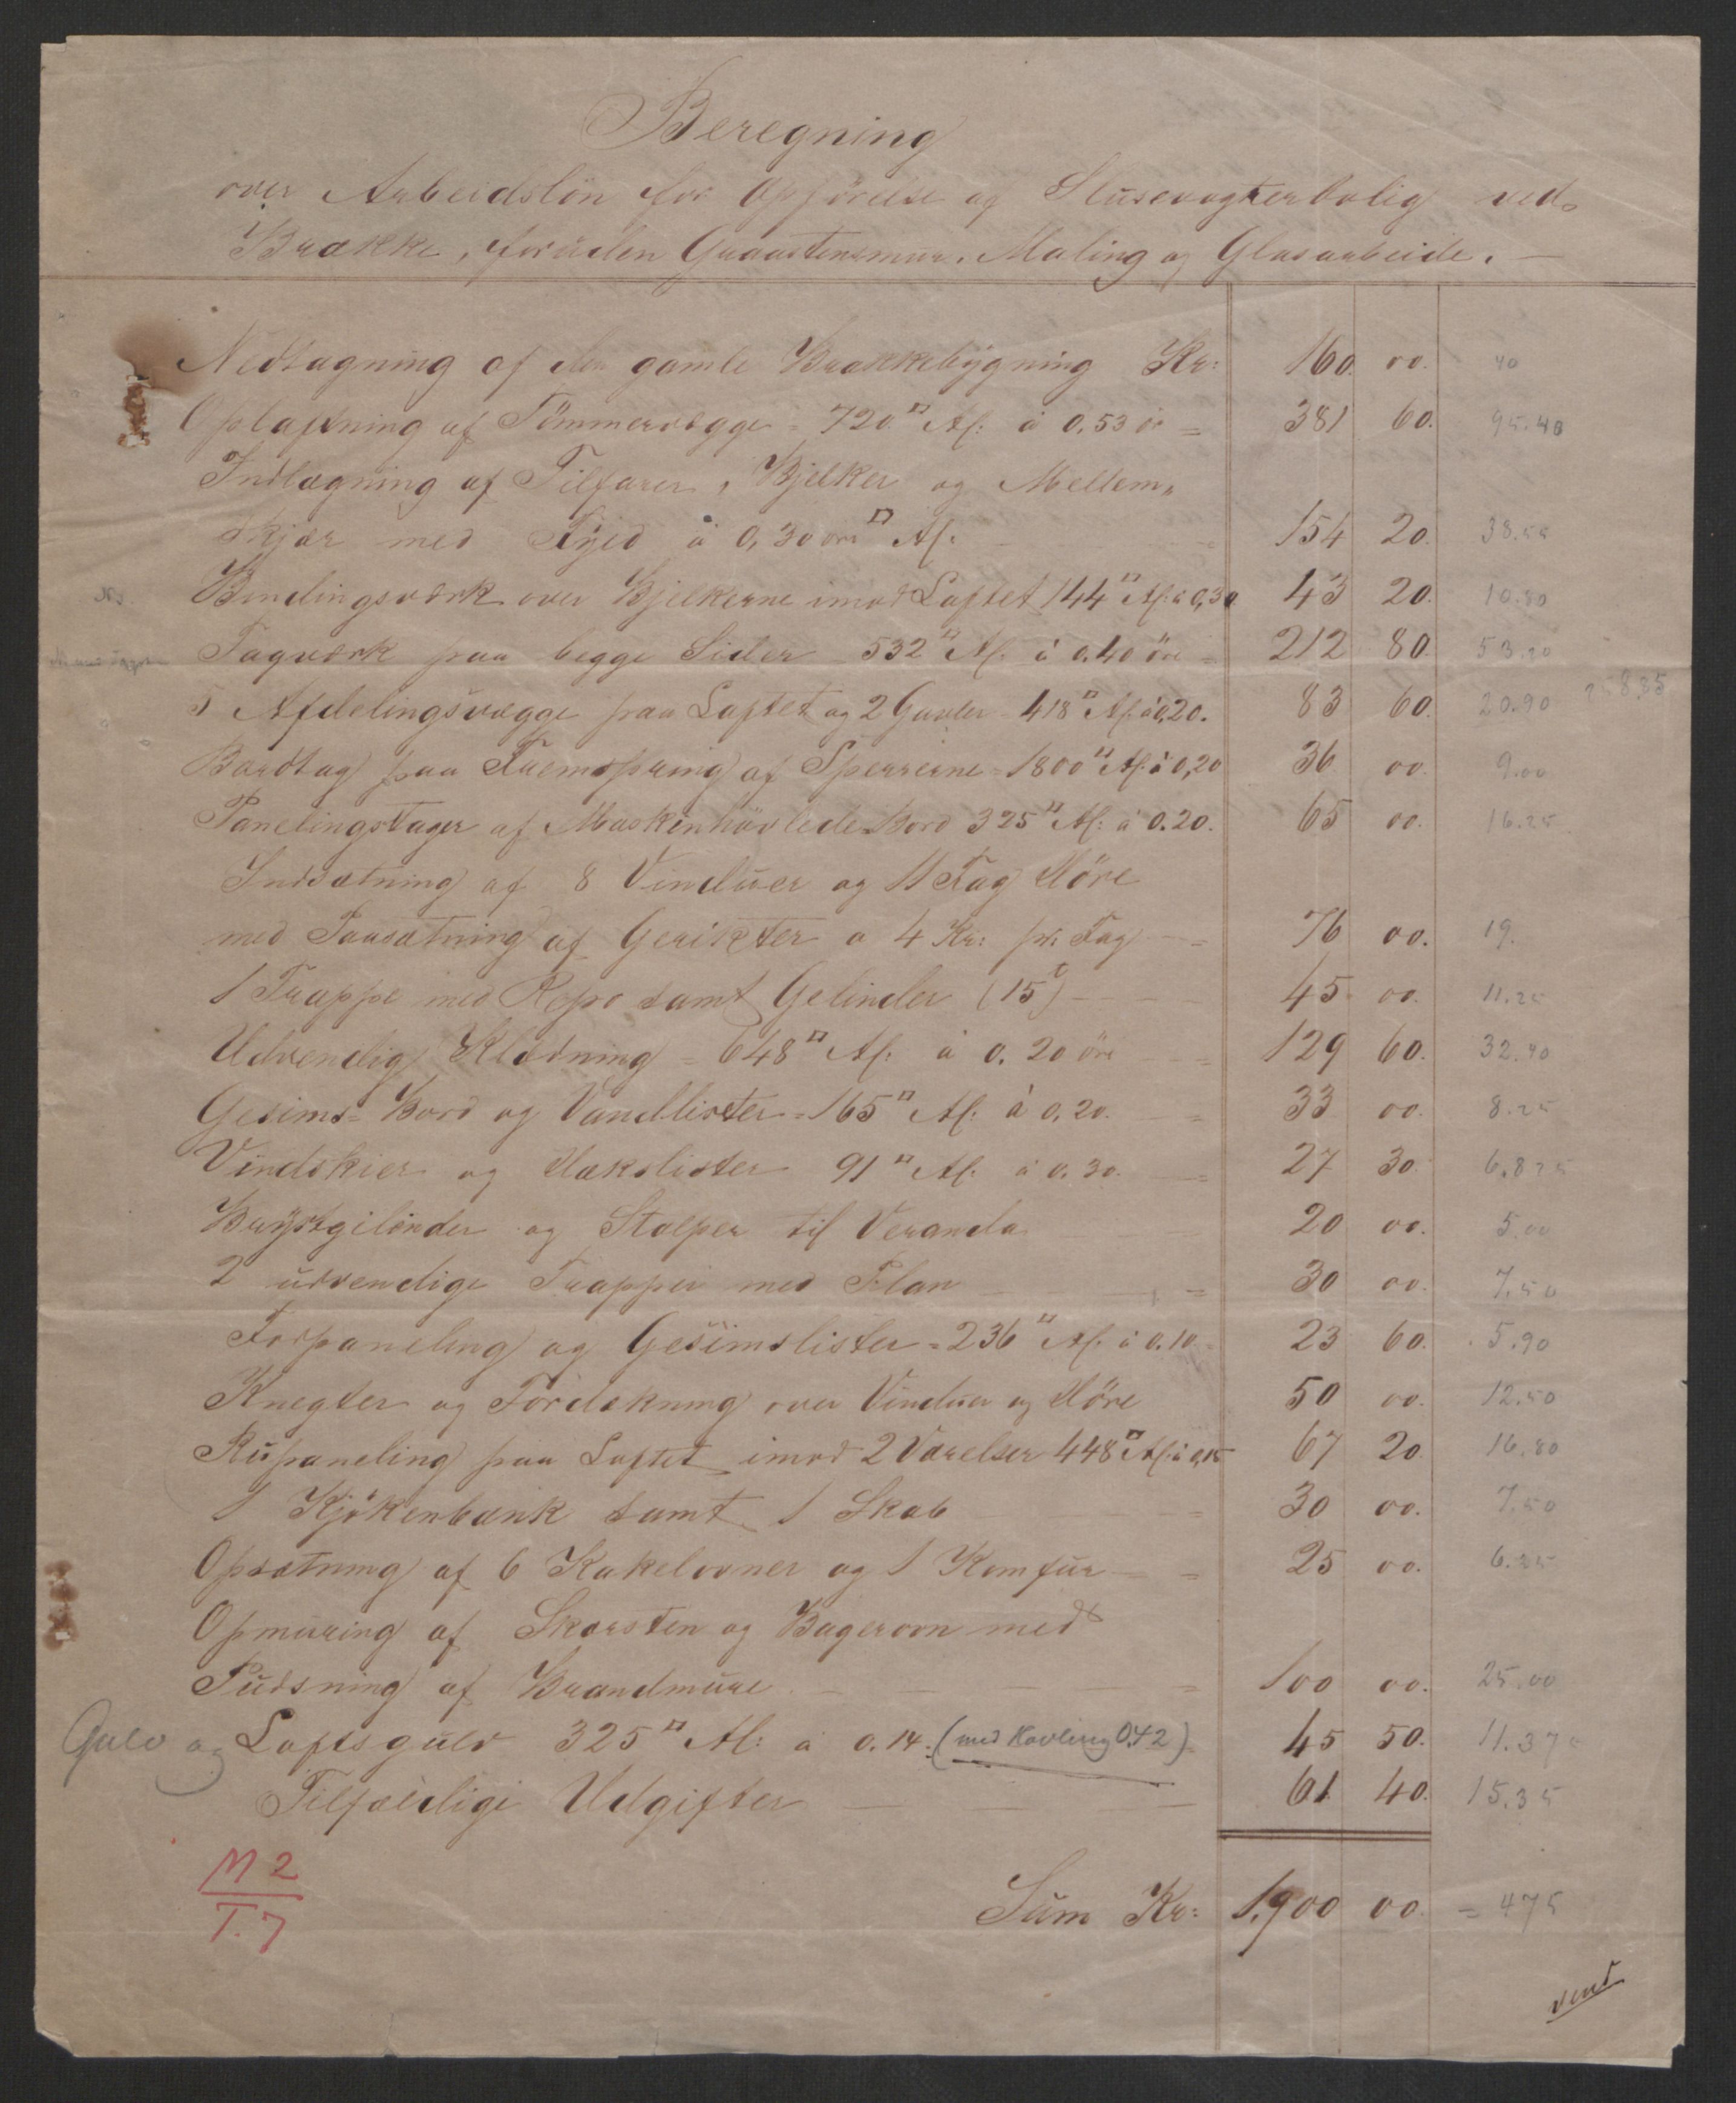 Beregning
over Arbeidslön for Opförelse af Slusevogterbolig ved
Brække, foruden Graastensmur, Maling og Glasarbeide.
Nedtagning af den gamle Brakkebygning Kr: 160. 00. 40
Oplaftning af Tömmervægge = 720 □ Al: à 0,53 ör = 381 60. 95.40
Indlægning af Tilfarer, Bjelker og Mellem-
skjær med Fyld à 0,30 öre □ Al. 154 20. 38.55
Bindingsværk over Bjelkerne imod Loftet 144 □ Al. à 0,30 43 20. 10.80
Tagværk paa begge Sider 532 □ Al. à 0.40 öre = 212 80 53.20
5 Afdelingsvægge paa Loftet og 2 Gavler = 418 □ Al. à 0,20. 83 60. 20.90
Bordtag paa Fremspring af Sperrerne = 1800 □ Al. à 0,20 36 00. 9.00
Panelingstager af Maskenhövlede Bord 325 □ Al: à 0.20. 65 00. 16.25
Indsætning af 8 Vinduer og 11 Fag Döre
med Paasætning af Gerikter a 4 Kr: pr. Fag = 76 00. 19.
1 Trappe med Repo samt Gelinder (15 ) 45 00. 11.25
Udvendig Klædning = 648 □ Al: à 0. 20 öre = 129 60. 32.40
Gesims- Bord og Vandlister = 165 □ Al: à 0,20. = 33 00. 8.25
Vindskier og Dækslister 91 □ Al. à 0.30. = 27 30. 6.825
Brystgilender og Stolper til Veranda 20 00. 5.00
2 udvendige Trapper med Plan = 30 00. 7.50
Forpaneling og Gesimslister = 236 □ Al. à 0.10 23 60. 5.90
Knegter og Fordækning over Vinduer og Döre 50 00. 12.50
Rupaneling paa Loftet imod 2 Værelser 448 □ Al. à 0,15 67 20 16.80
1 Kjökenbænk samt 1 Skab = 30 00. 7.50
Opsætning af 6 Kakelovner og 1 Komfur = 25 00. 6.25
Opmuring af Skorsten og Bagerovn med
Pudsning af Brandmure = 100 00. 25.00
Gulv og Loftsgulv 325 □ Al: à 0.14. (med Høvling 0.42) 45 50. 11.375
Tilfældige Udgifter 61 40. 15.35
M 2
T. 7
Sum Kr: 1.900 00 = 475
vend